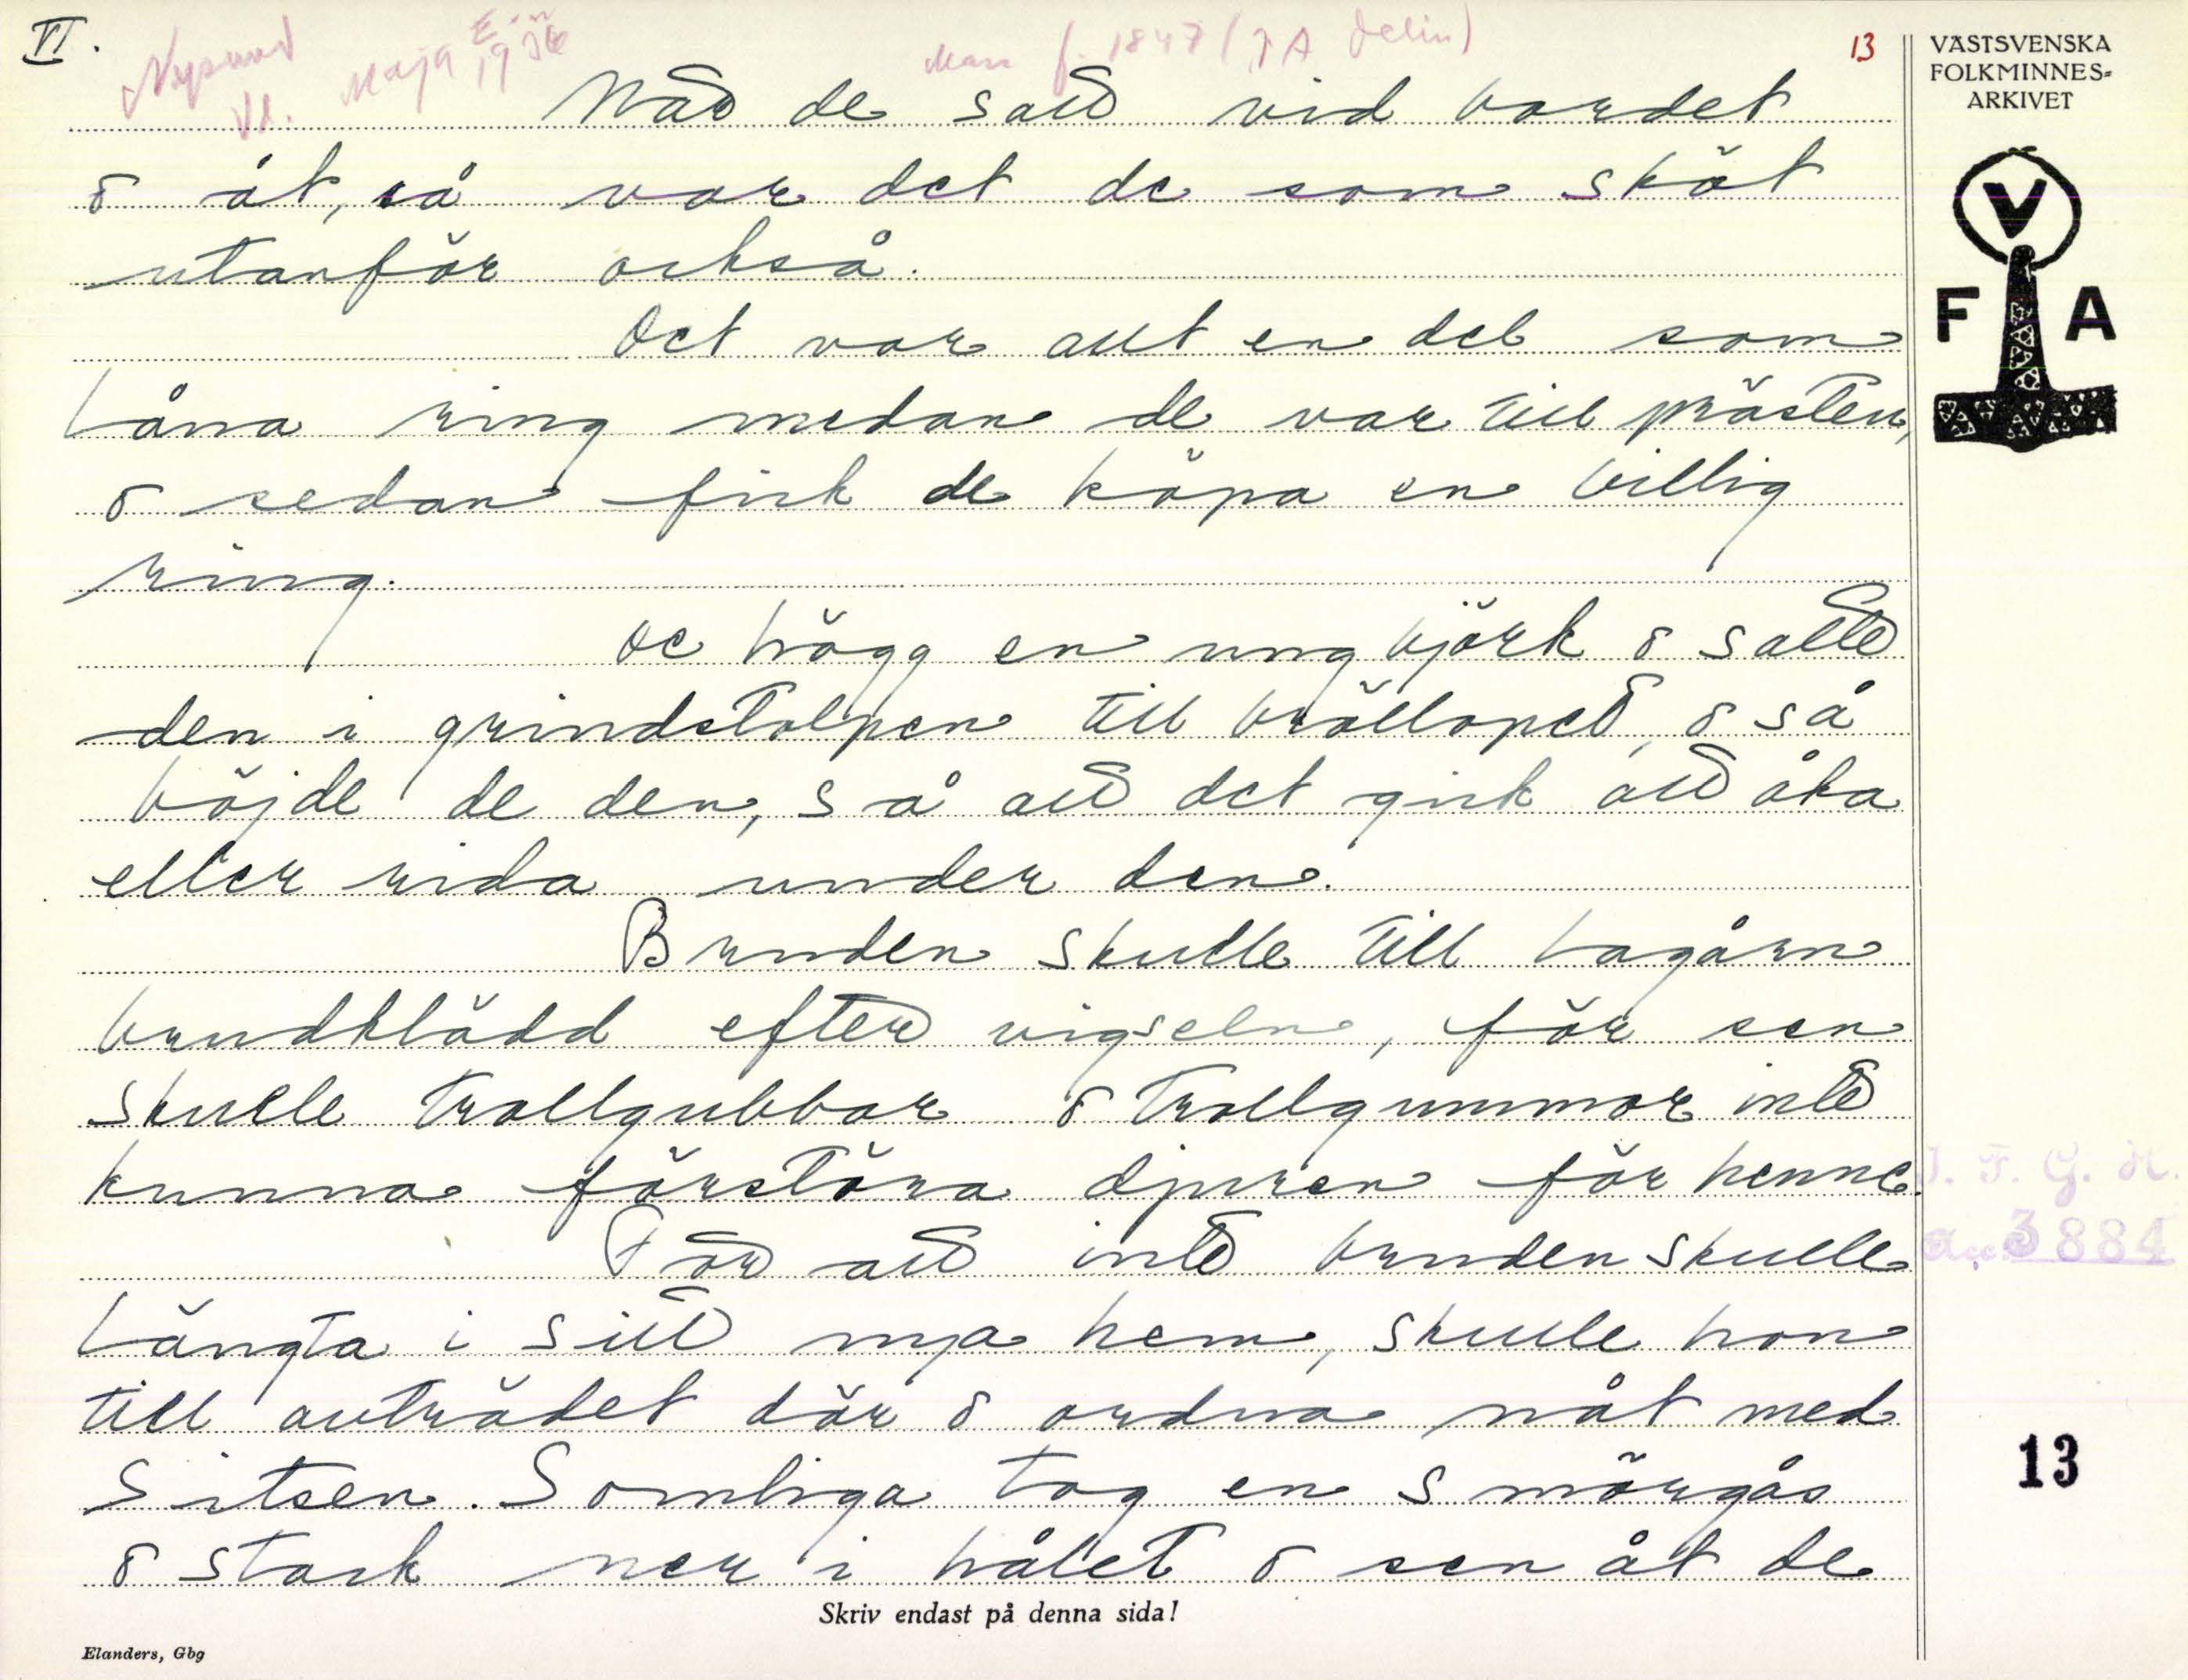 VI.
Nysund
Vl.
Maja Ein
1936
Man f. 1847 (J A Delin)
13
VÄSTSVENSKA
FOLKMINNES=
ARKIVET
V
F A
När de satt vid bordet
o åt, så var det de som sköt
utanför också.
Det var allt en del som
låna ring medan de var till prästen,
o sedan fick de köpa en billig
ring.
De högg en ung björk o satte
den i grindstolpen till bröllopet, o så
böjde de den, så att det gick att åka
eller rida under den.
Bruden skulle till lagårn
brudklädd efter vigseln, för sen
skulle trollgubbar o trollgummor inte
kunna förstöra djuren för henne.
För att inte bruden skulle
längta i sitt nya hem, skulle hon
till avträdet där o ordna nåt med
sitsen. Somliga tog en smörgås
o stack ner i hålet o sen åt de
I. F. G. H.
Acc. 3884
13
Skriv endast på denna sida!
Elanders, Gbg